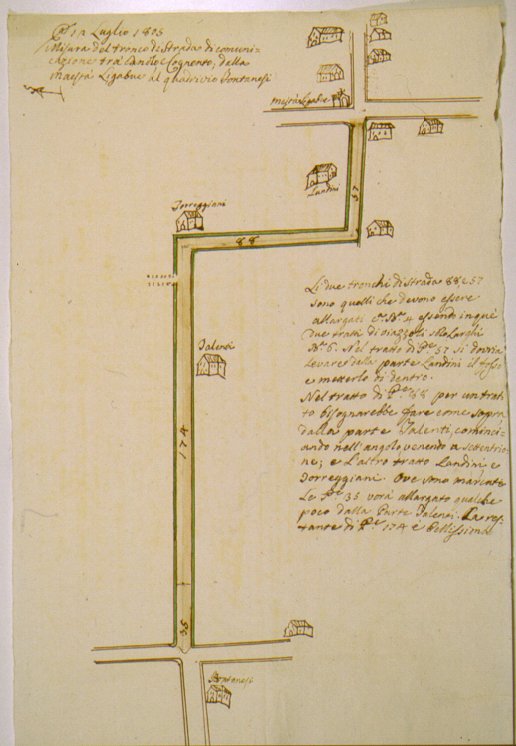 12 Luglio 1805
Misura del tronco di Strada di comuni-
cazione trà Canolo e Cognento, dalla
maestà Ligabue al quadrivio Pontanesi
maestà Ligabue
Landini
57
Torreggiani
88
Li due tronchi di Strada 88 e 57
sono quelli che devono essere
allargati N.º 4 essendo in qui
due tratti di già
N.º 6. Nel tratto di P.e 57 si dovria
Levare dalla parte Landini il fosso
e metterlo di dentro.
Nel tratto di P.e 88 per un trat-
to bisognarebbe fare come sopra
dalla parte Talenti, cominci-
ando nell'angolo venendo a settentrio-
ne; e l'altro tratto Landini e
Torreggiani. Ove sono marcate
Le P.e 35 vorà allargato qualche
poco dalla Parte Talenti. La res-
tante di P.e 174 è Bellissima
Talenti
174
35
Pontanesi